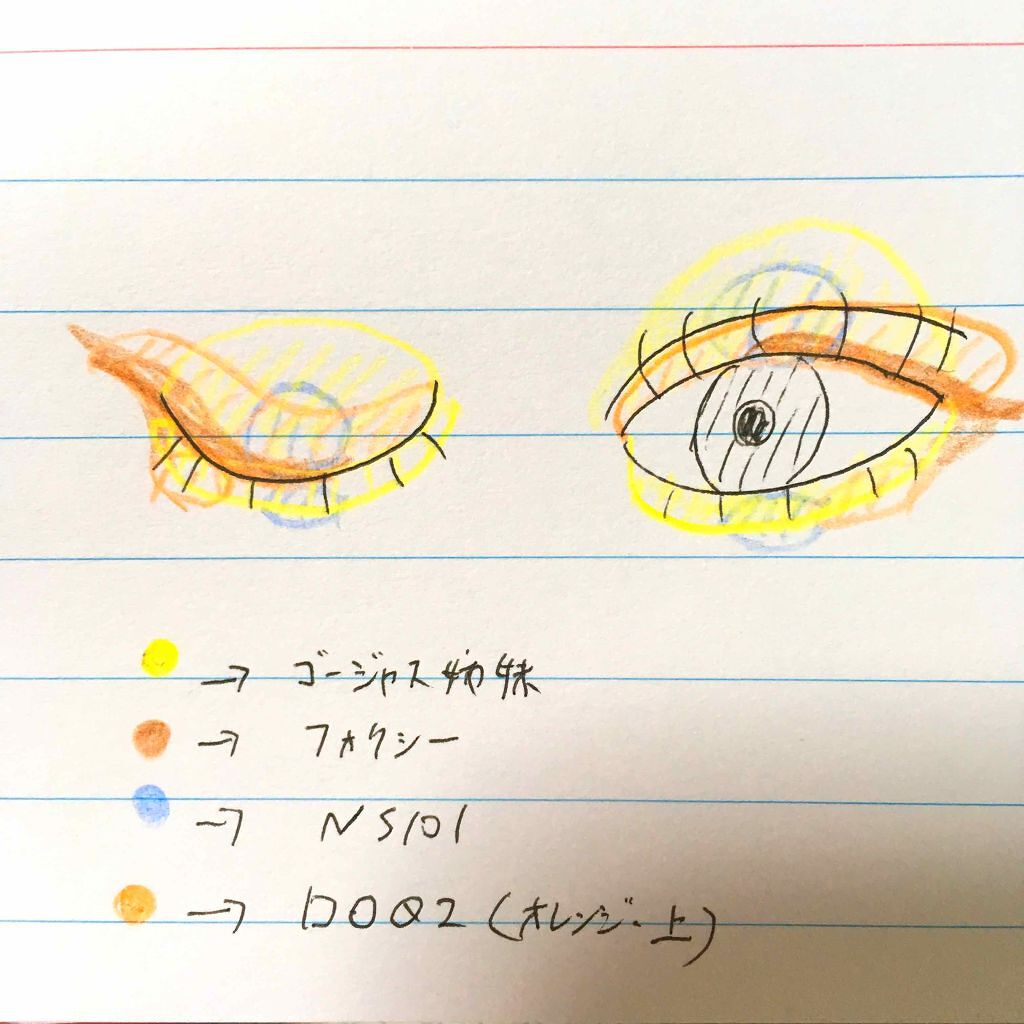 → ゴージャス姉妹
→ フォクシー
→ NS101
→ DOO2 (オレンジ・上)